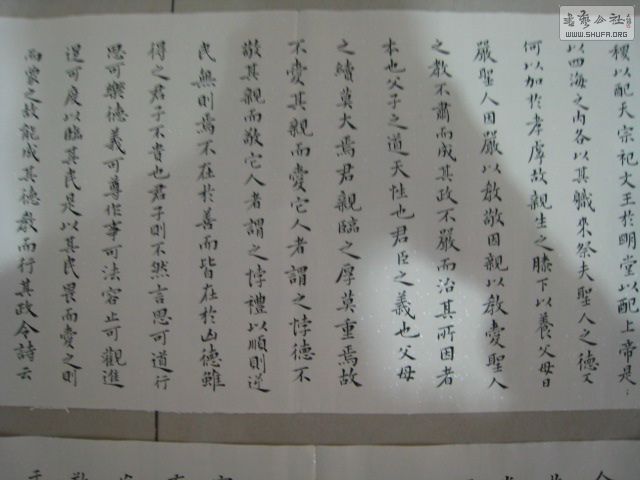 書藝公社
WWW.SHUFA.ORG
稷以配天宗祀文王於明堂以配上帝是:
以四海之內各以其職來祭夫聖人之德又
何以加於孝虖故親生之膝下以養父母日
嚴聖人因嚴以教敬因親以教愛聖人
之教不肅而成其政不嚴而治其所因者
本也父子之道天性也君臣之義也父母
之續莫大焉君親臨之厚莫重焉故
不愛其親而愛它人者謂之悖德不
敬其親而敬它人者謂之悖禮以順則逆
民無則焉不在於善而皆在於凶德雖
得之君子不貴也君子則不然言思可道行
思可樂德義可尊作事可法容止可觀進
退可度以臨其民是以其民畏而愛之則
而愛之故能成其德教而行其政令詩云